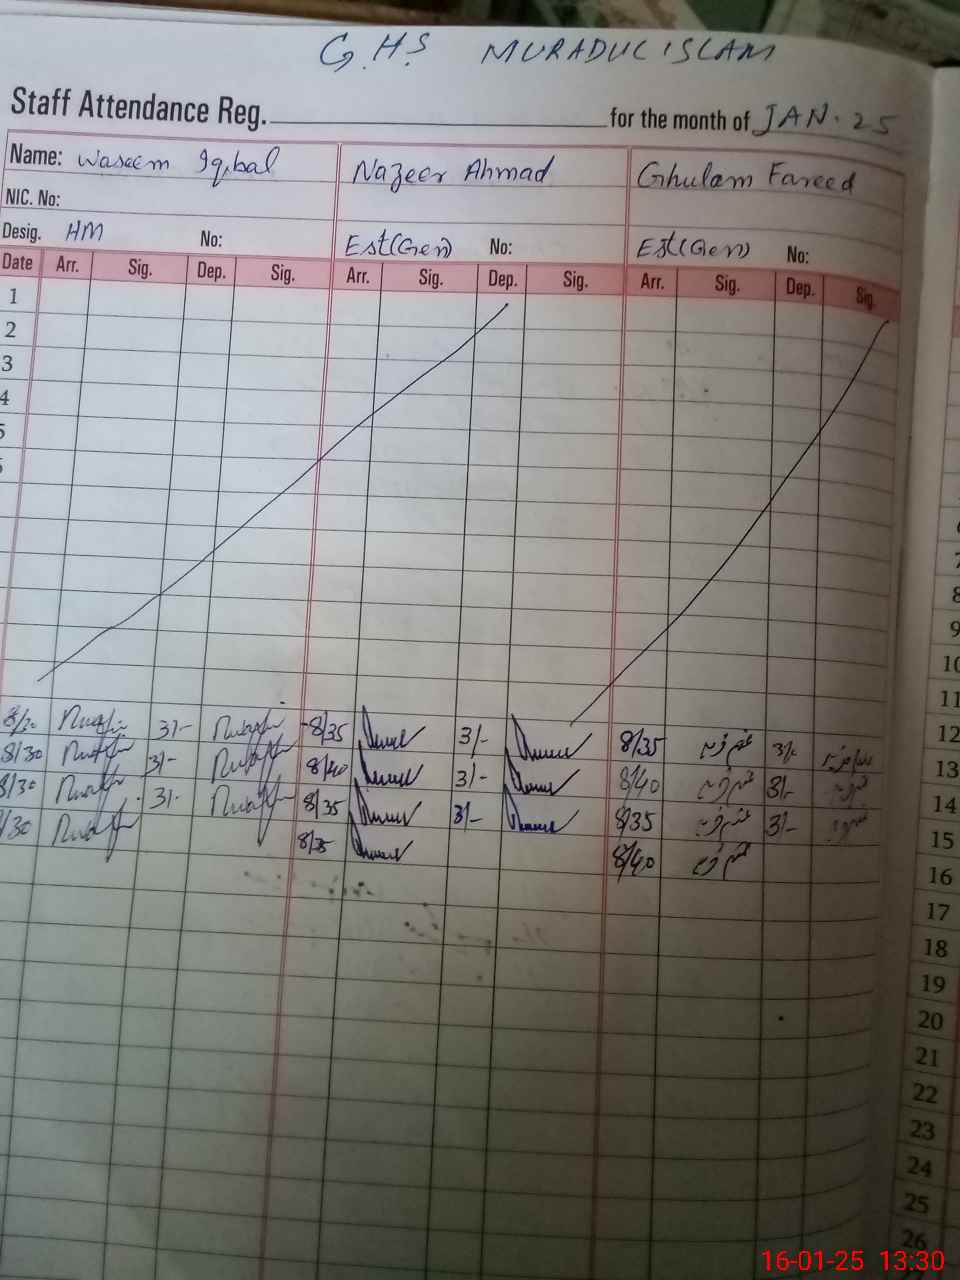 G.H.S MURADUL ISLAM
Staff Attendance Reg. for the month of JAN. 25
Name: Waseem Iqbal Nazeer Ahmad Ghulam Fareed
NIC. No:
Desig. HM No: Est(Gen) No: Est(Gen) No:
Date Arr. Sig. Dep. Sig. Arr. Sig. Dep. Sig. Arr. Sig. Dep. Sig.
1
2
3
4
5
8/35 3/- 8/35 3/-
8/30 3/- 8/40 3/- 8/40 3/-
8/30 3/- 8/35 3/- 8/35 3/-
8/35 8/40
6
7
8
9
10
11
12
13
14
15
16
17
18
19
20
21
22
23
24
25
26
16-01-25 13:30